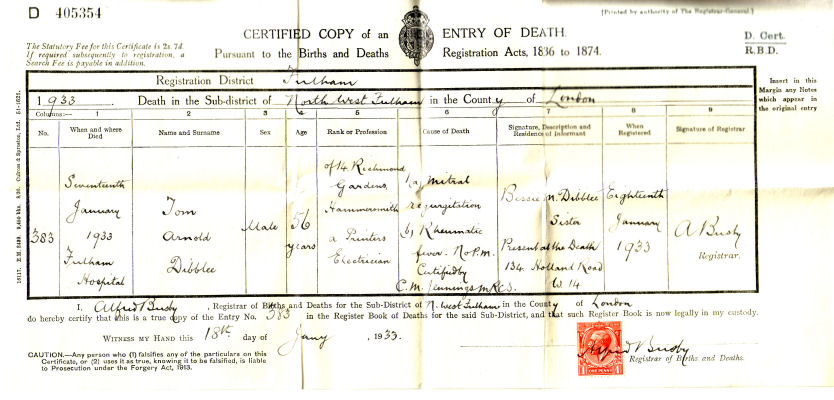 D 405354
[Printed by authority of The Registrar-General.]
CERTIFIED COPY of an ENTRY OF DEATH.
D. Cert.
R.B.D.
The Statutory Fee for this Certificate is 2s. 7d.
If required subsequently to registration, a
Search Fee is payable in addition.
Pursuant to the Births and Deaths Registration Acts, 1836 to 1874.
Registration District Fulham
Insert in this
Margin any Notes
which appear in
the original entry
1933. Death in the Sub-district of North West Fulham in the County of London
Columns:— 1 2 3 4 5 6 7 8 9
No. When and where Died Name and Surname Sex Age Rank or Profession Cause of Death Signature, Description and Residence of Informant When Registered Signature of Registrar
383
Seventeenth
January
1933
Fulham
Hospital
Tom
Arnold
Dibblee
Male
56
years
of 14 Richmond
Gardens
Hammersmith
a Printers
Electrician
(a) Mitral
regurgitation
(b) Rheumatic
fever. No P.M.
Certified by
C. M. Jennings M.R.C.S.
Bessie M. Dibblee
Sister
Present at the Death
134 Holland Road
W 14
Eighteenth
January
1933
A Busby
Registrar.
I, Alfred Busby, Registrar of Births and Deaths for the Sub-District of N. West Fulham in the County of London
do hereby certify that this is a true copy of the Entry No. 383 in the Register Book of Deaths for the said Sub-District, and that such Register Book is now legally in my custody.
WITNESS MY HAND this 18th day of Jany, 1933.
CAUTION.—Any person who (1) falsifies any of the particulars on this
Certificate, or (2) uses it as true, knowing it to be falsified, is liable
to Prosecution under the Forgery Act, 1913.
ONE PENNY
Alfred Busby
Registrar of Births and Deaths.